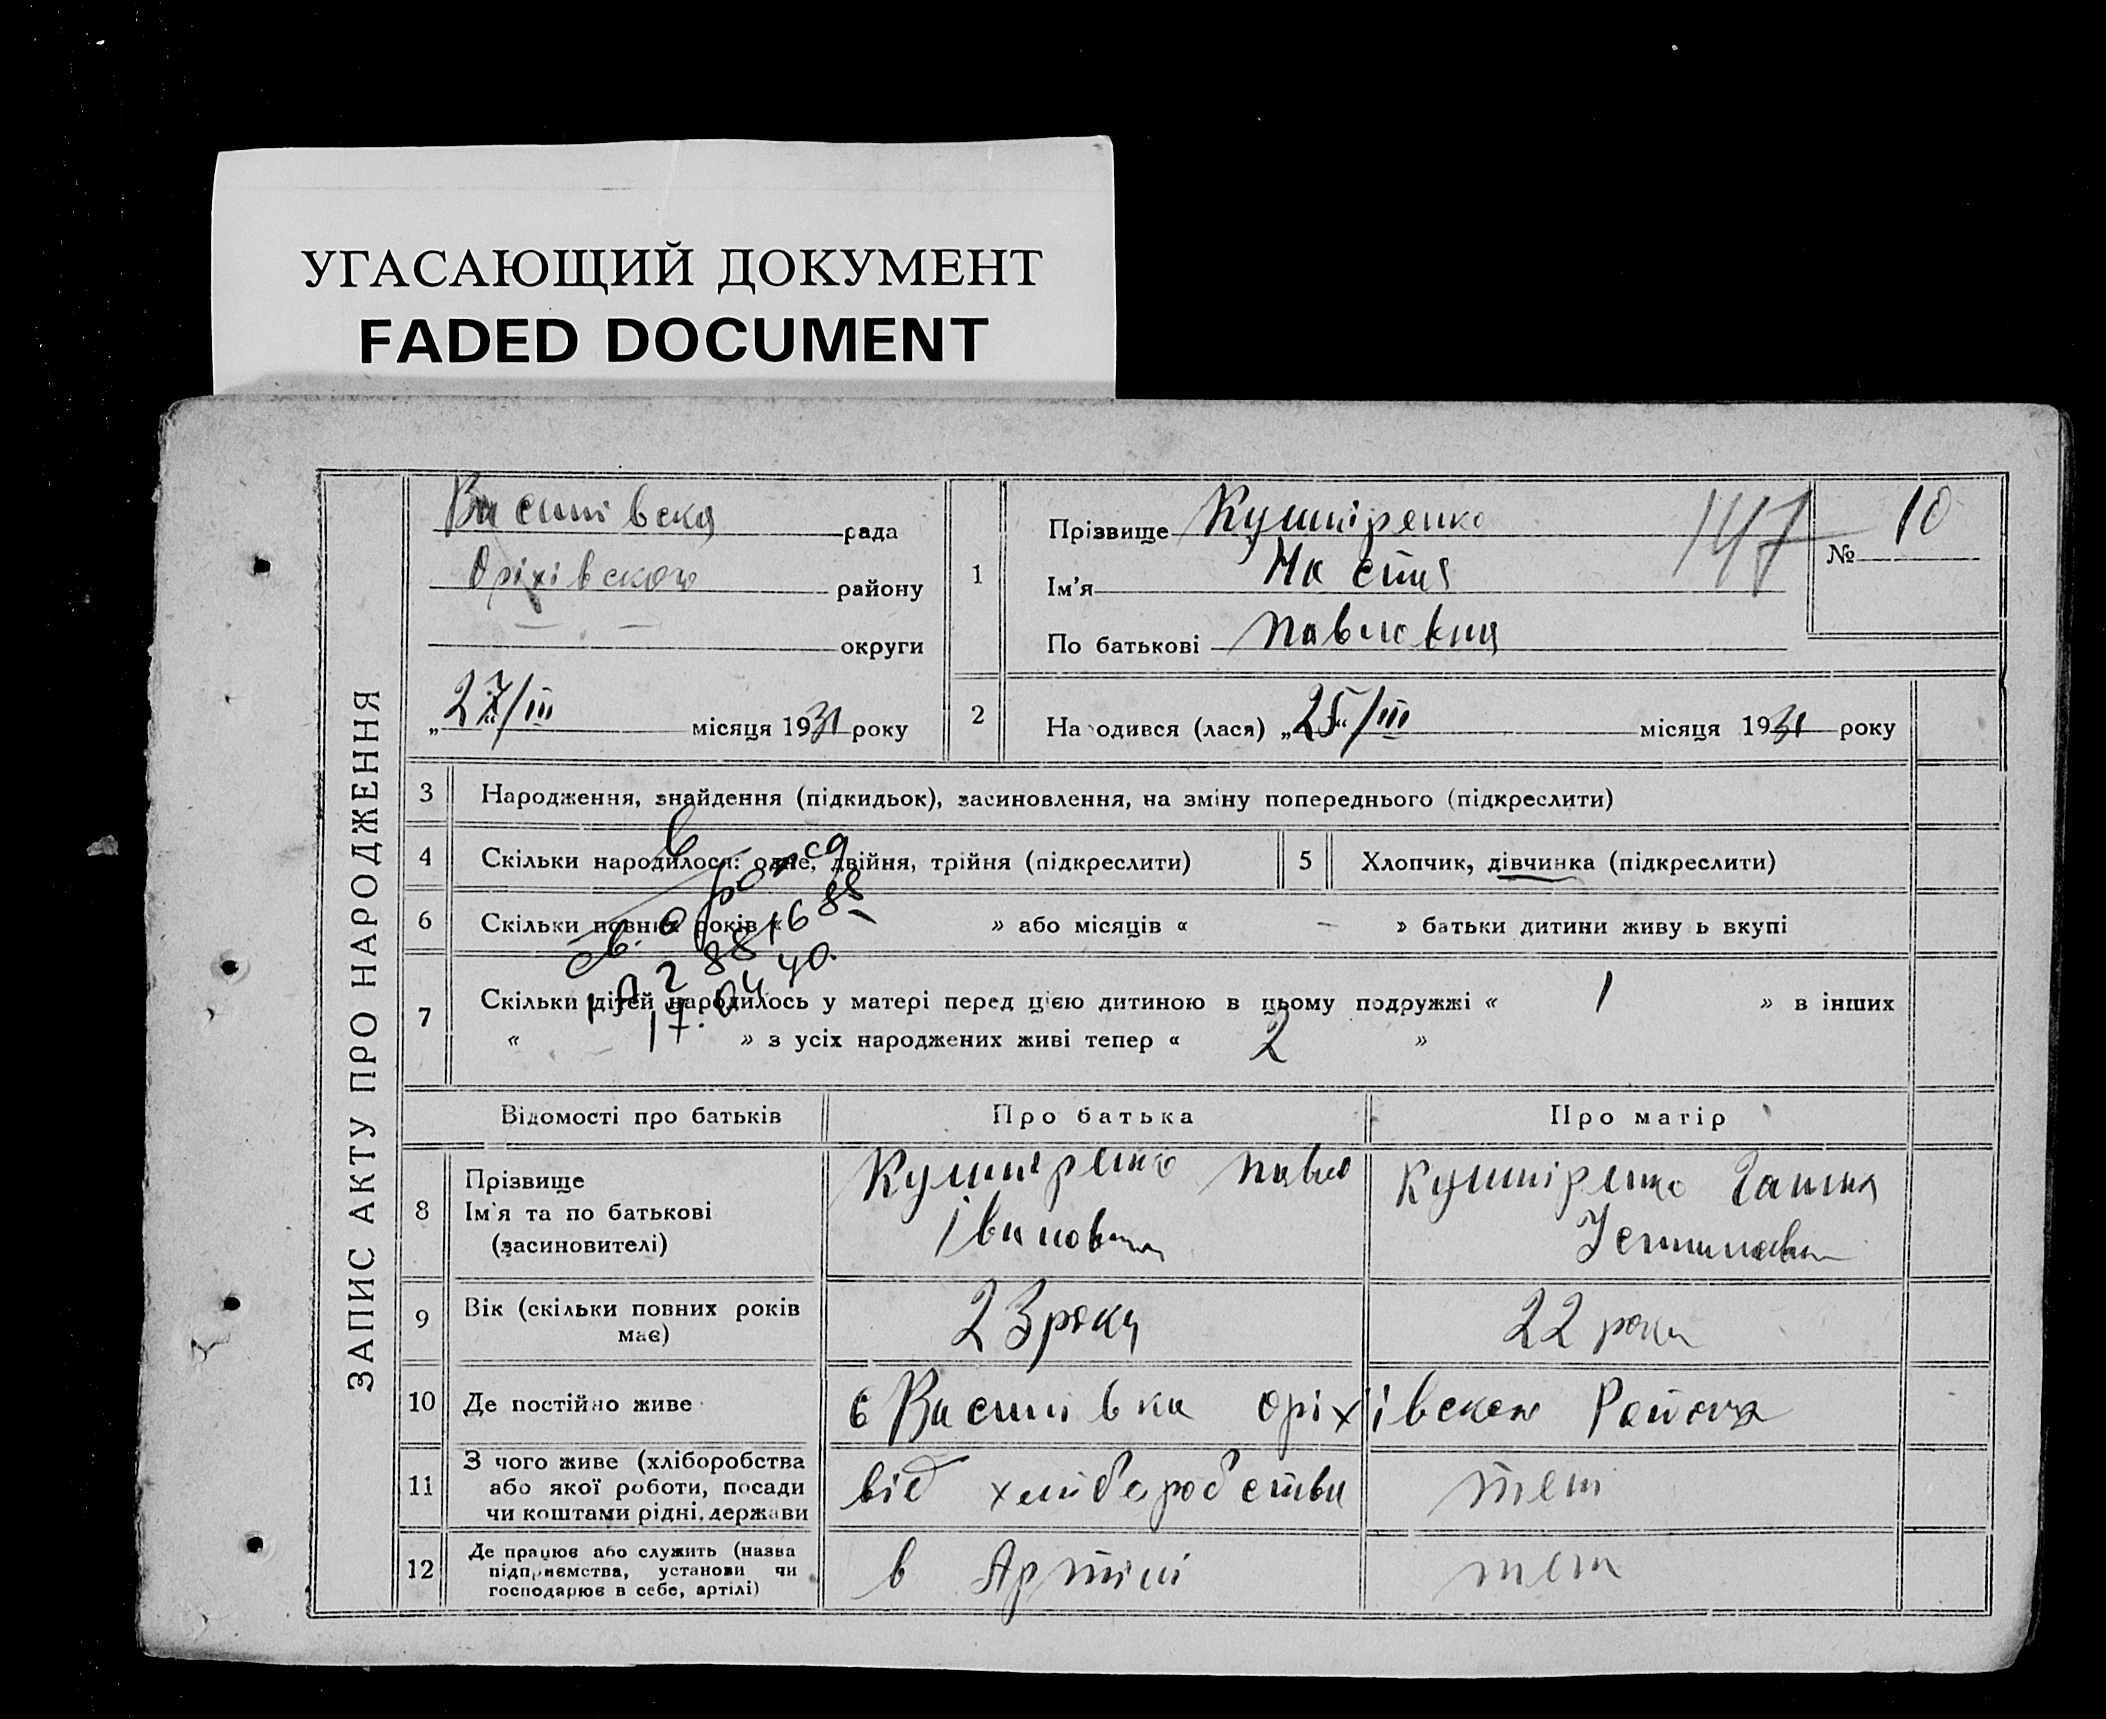 УГАСАЮЩИЙ ДОКУМЕНТ
FADED DOCUMENT
ЗАПИС АКТУ ПРО НАРОДЖЕННЯ
Василівска рада
Оріхівского району
округи
„27/III місяця 1931 року
1
Прізвище Кушніренко
Ім'я Настя
По батькові Павловна
147
№ 10
2 Народився (лася) „25“/III місяця 1931 року
3 Народження, знайдення (підкидьок), засиновлення, на зміну попереднього (підкреслити)
4 Скільки народилося: одне, двійня, трійня (підкреслити)
5 Хлопчик, дівчинка (підкреслити)
6 Скільки повних років « » або місяців « — » батьки дитини живуть вкупі
88
17.04.40.
7 Скільки дітей народилось у матері перед цією дитиною в цьому подружжі « 1 » в інших
« — » з усіх народжених живі тепер « 2 »
Відомості про батьків Про батька Про матір
8 Прізвище
Ім'я та по батькові
(засиновителі)
Кушніренко Павло
Іванович
Кушніренко Ганна
Устиновна
9 Вік (скільки повних років
має)
23 року
22 роки
10 Де постійно живе
с Василівка Оріхівского Району
11 З чого живе (хліборобства
або якої роботи, посади
чи коштами рідні, держави
від хліборобства
теж
12 Де працює або служить (назва
підприємства, установи чи
господарює в себе, артілі)
в Артілі
теж